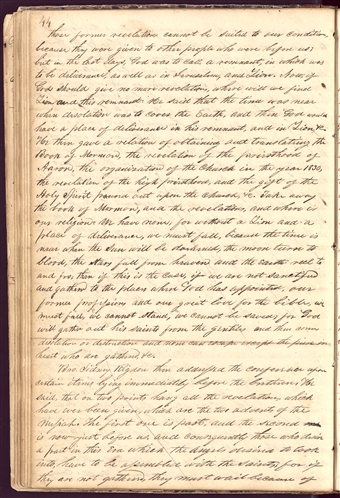 44
these former revelations cannot be suited to our condition,
because they were given to other people who were before us;
but in the last days, God was to call a remnant, in which was
to be deliverance, as well as in Jerusalem, and Zion. Now, if
God should give no more revelations, where will we find
Zion and this remnant. He said that the time was near
when desolation was to cover the Earth, and then God would
have a place of deliverance in his remnant, and in Zion, &c.
He then gave a relation of obtaining and translating the
Book of Mormon, the revelation of the priesthood of
Aaron, the organization of the Church in the year 1830,
the revelation of the high priesthood, and the gift of the
Holy Spirit poured out upon the Church, &c. Take away
the book of Mormon, and the revelations, and where is
our religion? We have none; for without a Zion and a
place of deliverance, we must fall, because the time is
near when the sun will be darkened, the moon turn to
blood, the stars fall from heaven and the earth reel to
and fro; then if this is the case, if we are not sanctified
and gathered to the places where God has appointed, our
former professions and our great love for the bible, we
must fall, we cannot stand, we cannot be saved; for God
will gather out his saints from the gentiles and then comes
desolation or destruction and none can escape except the pure in
heart who are gathered, &c.
Bro Sidney Rigdon then addressed the conference upon
certain items lying immediately before the brethren. He
said, that on two points hang all the revelations, which
have ever been given, which are the two advents of the
Messiah. The first one is past, and the second one
is now just before us, and consequently those who desire
a part in this Era which the Angels desired to look
into, have to be assembled with the saints; for if
they are not gathered, they must wail because of